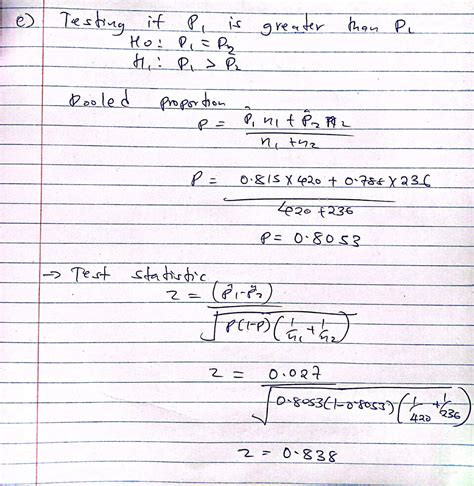 e) Testing if P₁ is greater than P₂
H0: P₁ = P₂
H₁: P₁ > P₂
Pooled proportion
P = (P̂₁ n₁ + P̂₂ n₂) / (n₁ + n₂)
P = (0.815 × 420 + 0.788 × 236) / (420 + 236)
P = 0.8053
→ Test statistic
z = (P̂₁ - P̂₂) / √(P(1-P)(1/n₁ + 1/n₂))
z = 0.027 / √(0.8053(1-0.8053)(1/420 + 1/236))
z = 0.838